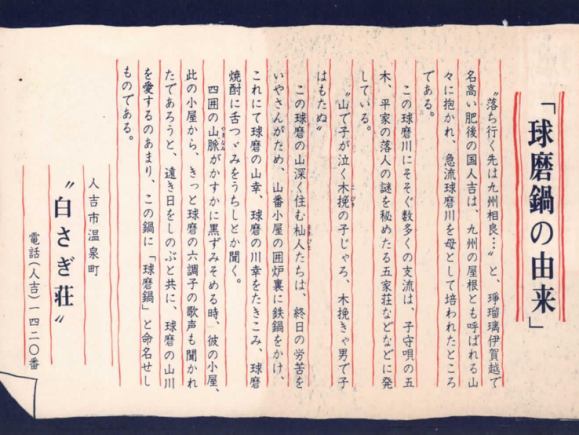 「球磨鍋の由来」
〝落ち行く先は九州相良…〟と、琤瑠璃伊賀越で
名高い肥後の国人吉は、九州の屋根とも呼ばれる山
々に抱かれ、急流球磨川を母として培われたところ
である。
この球磨川にそそぐ数多くの支流は、子守唄の五
木、平家の落人の謎を秘めたる五家荘などなどに発
している。
〝山で子が泣く木挽の子じゃろ、木挽きゃ男で子
はもたぬ〟
この球磨の山深く住む杣人たちは、終日の労苦を
いやさんがため、山番小屋の囲炉裏に鉄鍋をかけ、
これにて球磨の山幸、球磨の川幸をたきこみ、球磨
焼酎に舌つゞみをうちしとか聞く。
四囲の山脈がかすかに黒ずみそめる時、彼の小屋、
此の小屋から、きっと球磨の六調子の歌声も聞かれ
たであろうと、遠き日をしのぶと共に、球磨の山川
を愛するのあまり、この鍋に「球磨鍋」と命名せし
ものである。
人吉市温泉町
〝白さぎ荘〟
電話(人吉)一四二〇番